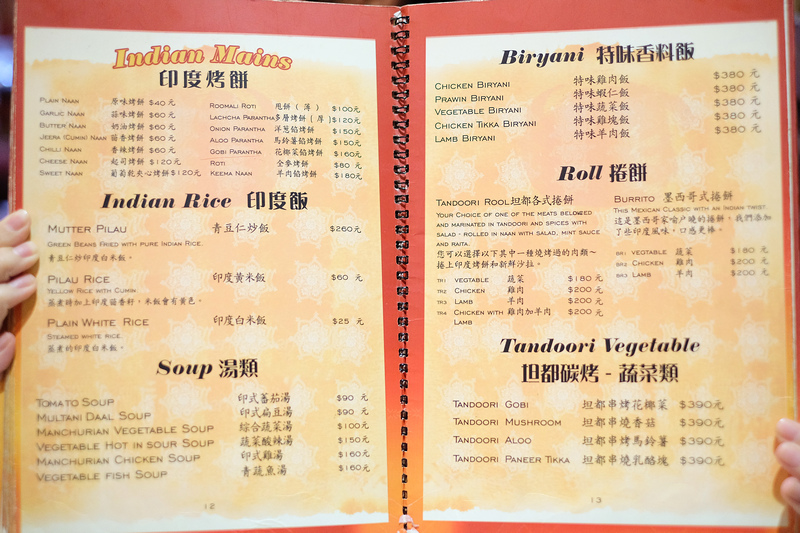 Indian Mains
印度烤餅
Plain Naan 原味烤餅 $40元
Garlic Naan 蒜味烤餅 $60元
Butter Naan 奶油烤餅 $60元
Jeera (Cumin) Naan 茴香烤餅 $60元
Chilli Naan 香辣烤餅 $60元
Cheese Naan 起司烤餅 $120元
Sweet Naan 葡萄乾夾心烤餅 $120元
Roomali Roti 甩餅(薄) $100元
Lachcha Parantha 多層烤餅(厚) $120元
Onion Parantha 洋蔥餡烤餅 $150元
Aloo Parantha 馬鈴薯餡烤餅 $150元
Gobi Parantha 花椰菜餡烤餅 $160元
Roti 全麥烤餅 $80元
Keema Naan 羊肉餡烤餅 $180元
Indian Rice 印度飯
Mutter Pilau 青豆仁炒飯 $260元
Green Beans Fried with pure Indian Rice.
青豆仁炒印度白米飯。
Pilau Rice 印度黃米飯 $60元
Yellow Rice with Cumin
蒸煮時加上印度茴香籽,米飯會有黃色。
Plain White Rice 印度白米飯 $25元
Steamed white rice.
蒸煮的印度白米飯。
Soup 湯類
Tomato Soup 印式蕃茄湯 $90元
Multani Daal Soup 印式扁豆湯 $90元
Manchurian Vegetable Soup 綜合蔬菜湯 $100元
Vegetable Hot in sour Soup 蔬菜酸辣湯 $150元
Manchurian Chicken Soup 印式雞湯 $160元
Vegetable fish Soup 青蔬魚湯 $160元
12
Biryani 特味香料飯
Chicken Biryani 特味雞肉飯 $380元
Prawin Biryani 特味蝦仁飯 $380元
Vegetable Biryani 特味蔬菜飯 $380元
Chicken Tikka Biryani 特味雞塊飯 $380元
Lamb Biryani 特味羊肉飯 $380元
Roll 捲餅
Tandoori Rool 坦都各式捲餅
Your Choice of one of the meats beloweed
and marinated in Tandoori and spices with
salad - rolled in naan with salad, mint sauce
and raita.
您可以選擇以下其中一種燒烤過的肉類~
捲上印度烤餅和新鮮沙拉。
TR1 vegetable 蔬菜 $180元
TR2 Chicken 雞肉 $200元
TR3 Lamb 羊肉 $200元
TR4 Chicken with Lamb 雞肉加羊肉 $200元
Burrito 墨西哥式捲餅
This Mexican Classic with an Indian twist.
這是墨西哥家喻戶曉的捲餅,我們添加
了些印度風味,口感更棒。
BR1 Vegtable 蔬菜 $180元
BR2 Chicken 雞肉 $200元
BR3 Lamb 羊肉 $200元
Tandoori Vegetable
坦都碳烤-蔬菜類
Tandoori Gobi 坦都串烤花椰菜 $390元
Tandoori Mushroom 坦都串燒香菇 $390元
Tandoori Aloo 坦都串烤馬鈴薯 $390元
Tandoori Paneer Tikka 坦都串燒乳酪塊 $390元
13